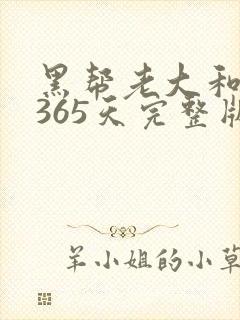 黑帮老大和
365天完整版
羊小姐的小草